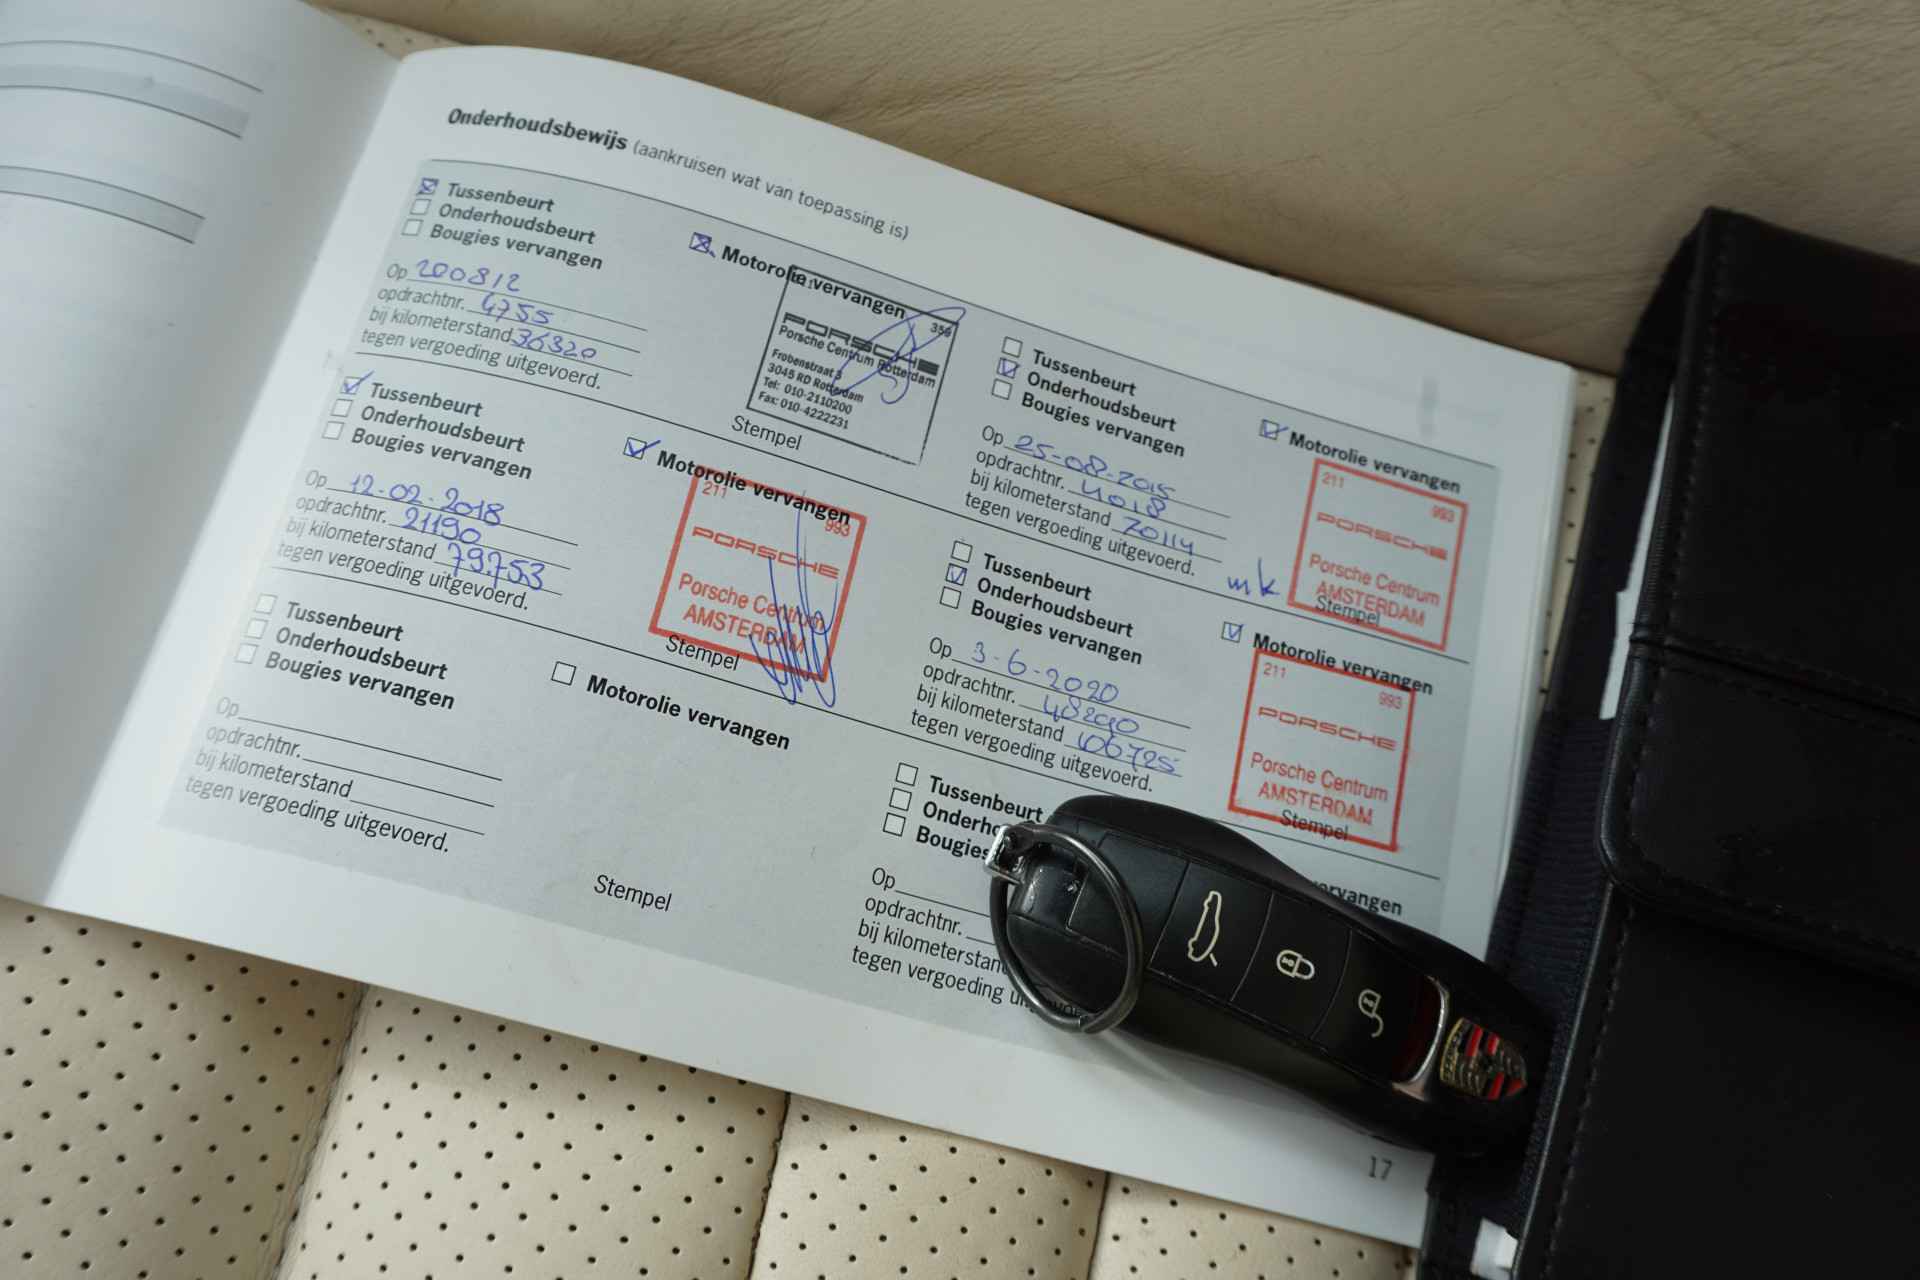 Onderhoudsbewijs (aankruisen wat van toepassing is)
Tussenbeurt
Onderhoudsbeurt
Bougies vervangen
Motorolie vervangen
Op 200812
opdrachtnr. 4755
bij kilometerstand 36320
tegen vergoeding uitgevoerd.
356
PORSCHE
Porsche Centrum Rotterdam
Frobenstraat 3
3045 RD Rotterdam
Tel: 010-2110200
Fax: 010-4222231
Stempel
Tussenbeurt
Onderhoudsbeurt
Bougies vervangen
Motorolie vervangen
Op 25-08-2015
opdrachtnr. 4018
bij kilometerstand 70114
tegen vergoeding uitgevoerd.
mk
211
993
PORSCHE
Porsche Centrum
AMSTERDAM
Stempel
Tussenbeurt
Onderhoudsbeurt
Bougies vervangen
Motorolie vervangen
Op 12-02-2018
opdrachtnr. 21190
bij kilometerstand 79.753
tegen vergoeding uitgevoerd.
211
993
PORSCHE
Porsche Centrum
AMSTERDAM
Stempel
Tussenbeurt
Onderhoudsbeurt
Bougies vervangen
Motorolie vervangen
Op 3-6-2020
opdrachtnr. 48290
bij kilometerstand 106725
tegen vergoeding uitgevoerd.
211
993
PORSCHE
Porsche Centrum
AMSTERDAM
Stempel
Tussenbeurt
Onderhoudsbeurt
Bougies vervangen
Motorolie vervangen
Op
opdrachtnr.
bij kilometerstand
tegen vergoeding uitgevoerd.
Stempel
Tussenbeurt
Onderho
Bougies
ervangen
Op
opdrachtnr.
bij kilometerstan
tegen vergoeding ui
17